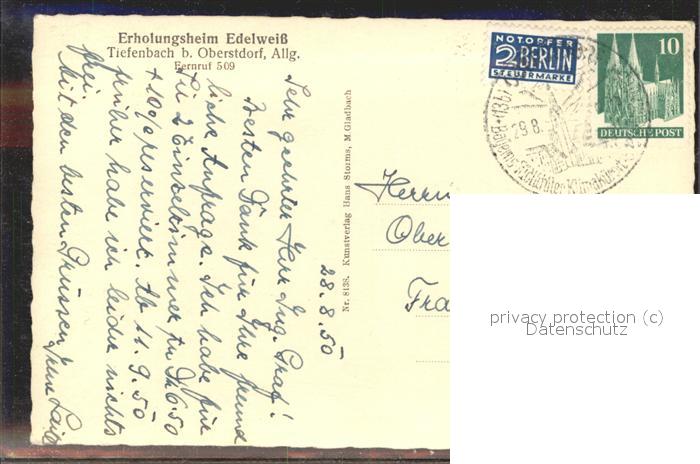 Erholungsheim Edelweiß
Tiefenbach b. Oberstdorf, Allg.
Fernruf 509
28.8.50
Sehr geehrter Herr Ing. Graf!
Besten Dank für Ihre freund
liche Anfrage. Ich habe für
Sie 2 Einzelzimmer zu DM 6.50
+ 10% reserviert. Ab 11.9.50
früher habe ich leider nichts
frei.
Mit den besten Grüssen
Nr. 8138. Kunstverlag Hans Storms, M.Gladbach
NOTOPFER
2 BERLIN
STEUERMARKE
10
DEUTSCHE POST
(13b)
29.8.
Bayerns südlichster Klimakurort
Herrn
Ober
Fra
privacy protection (c)
Datenschutz